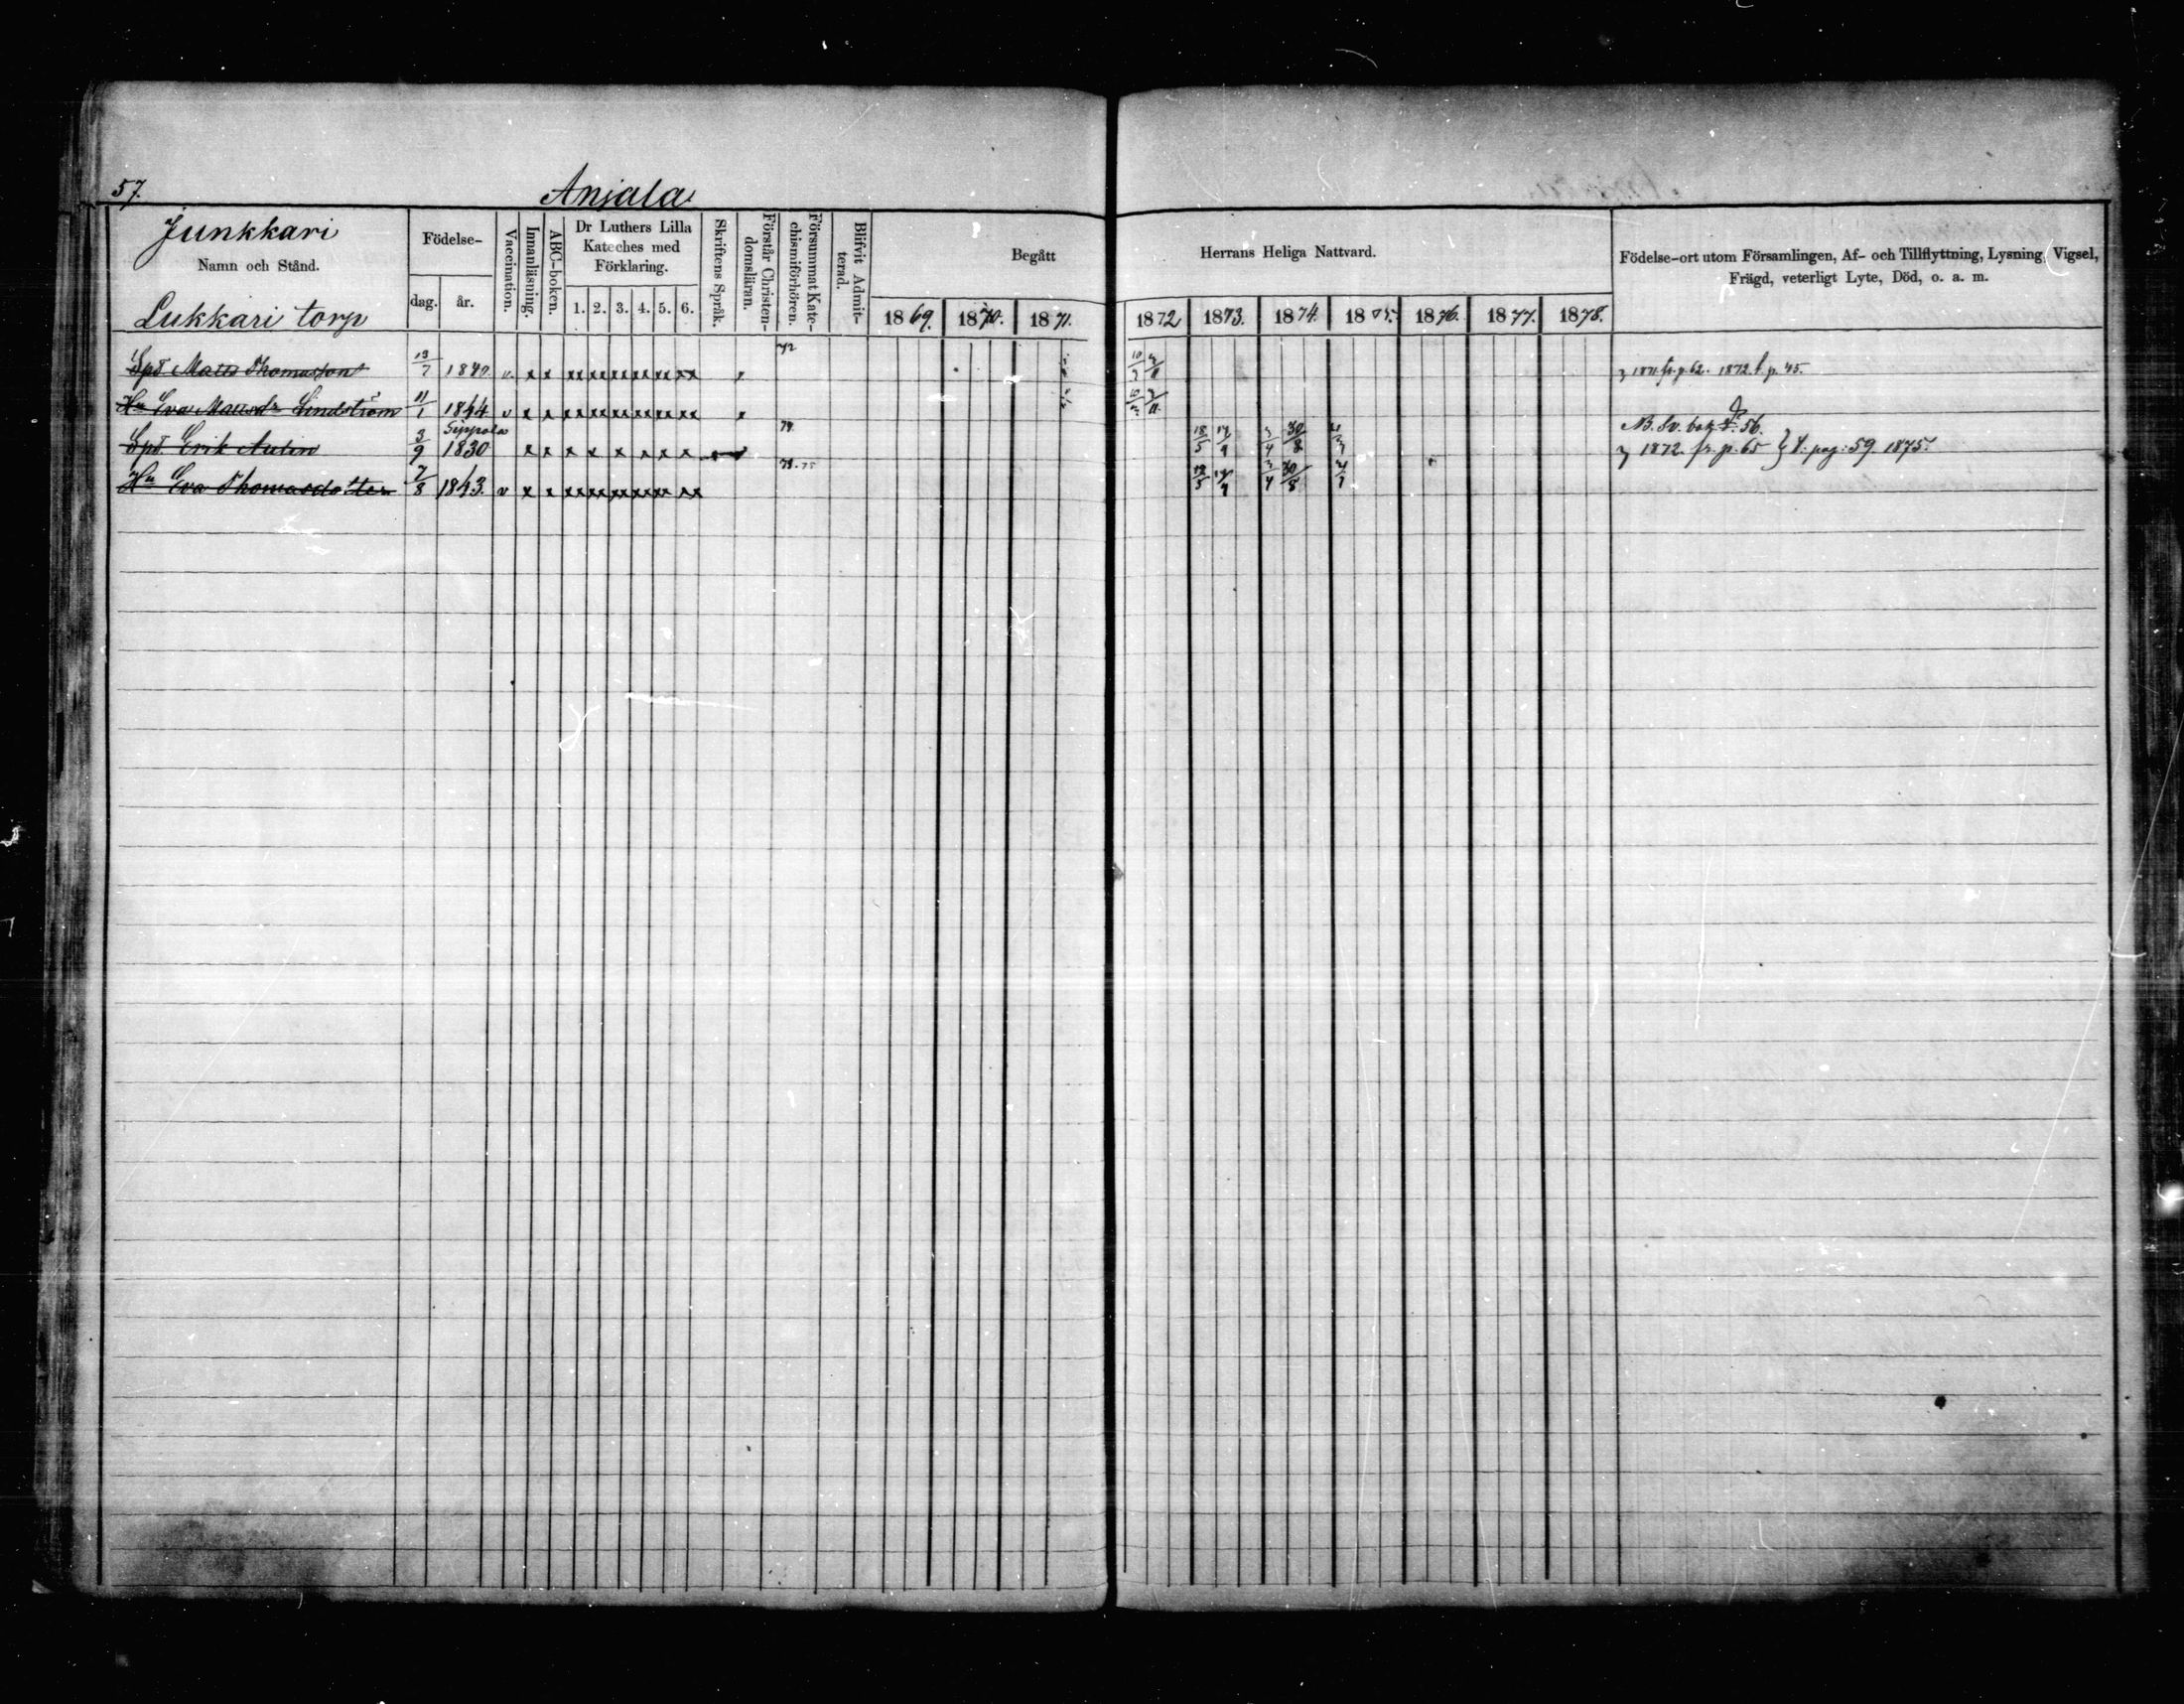 57.
Anjala
Junkkari
Namn och Stånd.
Lukkari torp
Födelse-
dag. år.
Vaccination.
Innanläsning.
ABC-boken.
Dr Luthers Lilla
Kateches med
Förklaring.
1. 2. 3. 4. 5. 6.
Skriftens Språk.
Förstår Christen-
domsläran.
Försummat Kate-
chismiförhören.
Blifvit Admit-
terad.
Begått Herrans Heliga Nattvard.
1869. 1870. 1871. 1872 1873. 1874. 1875. 1876. 1877. 1878.
Födelse-ort utom Församlingen, Af- och Tillflyttning, Lysning, Vigsel,
Frägd, veterligt Lyte, Död, o. a. m.
Spt Matts Thomasson 13/7 1840. v x x xx xx xx xx xx xx 72 1871. fr. p. 62. 1872. t. p. 45.
Hu Eva Mattsdr Lindström 11/1 1844 v x x xx xx xx xx xx xx
Sippola
N.B. Sv. bok 56.
Spt Erik Aulin 3/9 1830 x x x x x x x x 74 18/5 3/4 30/8 1872. fr. p. 65 } t. pag: 59. 1875.
Hu Eva Thomasdotter 7/8 1843. v x x xx xx xx xx xx xx 73. 75 18/5 3/4 30/8